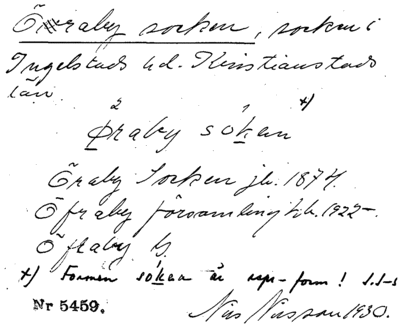 Öraby socken, socken i
Ingelstads hd. Kristianstads
län.
2 1 x)
Øraby sókan
Öraby Socken jb. 1874.
Öfraby församling kb. 1922-.
Öfraby G.
x) Formen sókan är repr-form! S.S-s
Nr 5459. Nils Nilsson 1930.